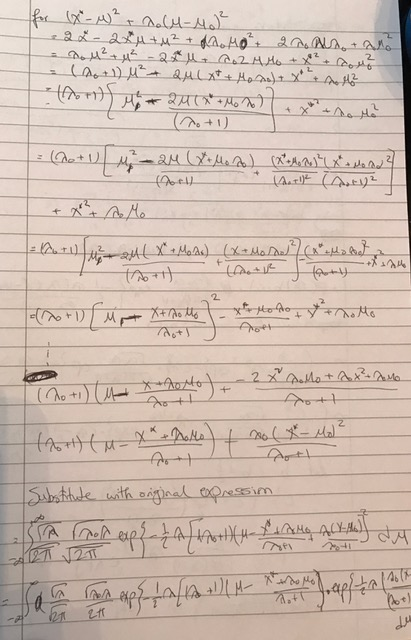 for (x* - μ)² + λ₀(μ - μ₀)²
= 2x* - 2x*μ + μ² + λ₀μ₀² + 2λ₀μλ₀ + λ₀μ₀²
= λ₀μ² + μ² - 2x*μ + λ₀2μμ₀ + x*² + λ₀μ₀²
= (λ₀+1)μ² - 2μ(x* + μ₀λ₀) + x*² + λ₀μ₀²
= (λ₀+1)[μ² - 2μ(x* + μ₀λ₀)/(λ₀+1)] + x*² + λ₀μ₀²
= (λ₀+1)[μ² - 2μ(x* + μ₀λ₀)/(λ₀+1) + (x*+μ₀λ₀)²/(λ₀+1)² (x*+μ₀λ₀)²/(λ₀+1)²]
+ x*² + λ₀μ₀
= (λ₀+1)[μ² - 2μ(x* + μ₀λ₀)/(λ₀+1) + (x+μ₀λ₀)²/(λ₀+1)²] - (x*+μ₀λ₀)²/(λ₀+1) + x*² + λ₀μ₀
= (λ₀+1)[μ - (x+λ₀μ₀)/(λ₀+1)]² - (x*+μ₀λ₀)/(λ₀+1) + x*² + λ₀μ₀
(λ₀+1)(μ - (x+λ₀μ₀)/(λ₀+1)) + (-2x*λ₀μ₀ + λ₀x² + λ₀μ₀)/(λ₀+1)
(λ₀+1)(μ - (x*+λ₀μ₀)/(λ₀+1)) + λ₀(x*-μ₀)²/(λ₀+1)
Substitute with original expression
= ∫ √λ/√2π √λ₀λ/√2π exp{-½λ[(λ₀+1)(μ - (x*+λ₀μ₀)/(λ₀+1) + λ₀(x-μ₀)/(λ₀+1)]² dμ
= ∫ √λ/√2π √λ₀λ/2π exp{-½λ[(λ₀+1)(μ - (x*+λ₀μ₀)/(λ₀+1)) . exp{-½λ
dμ